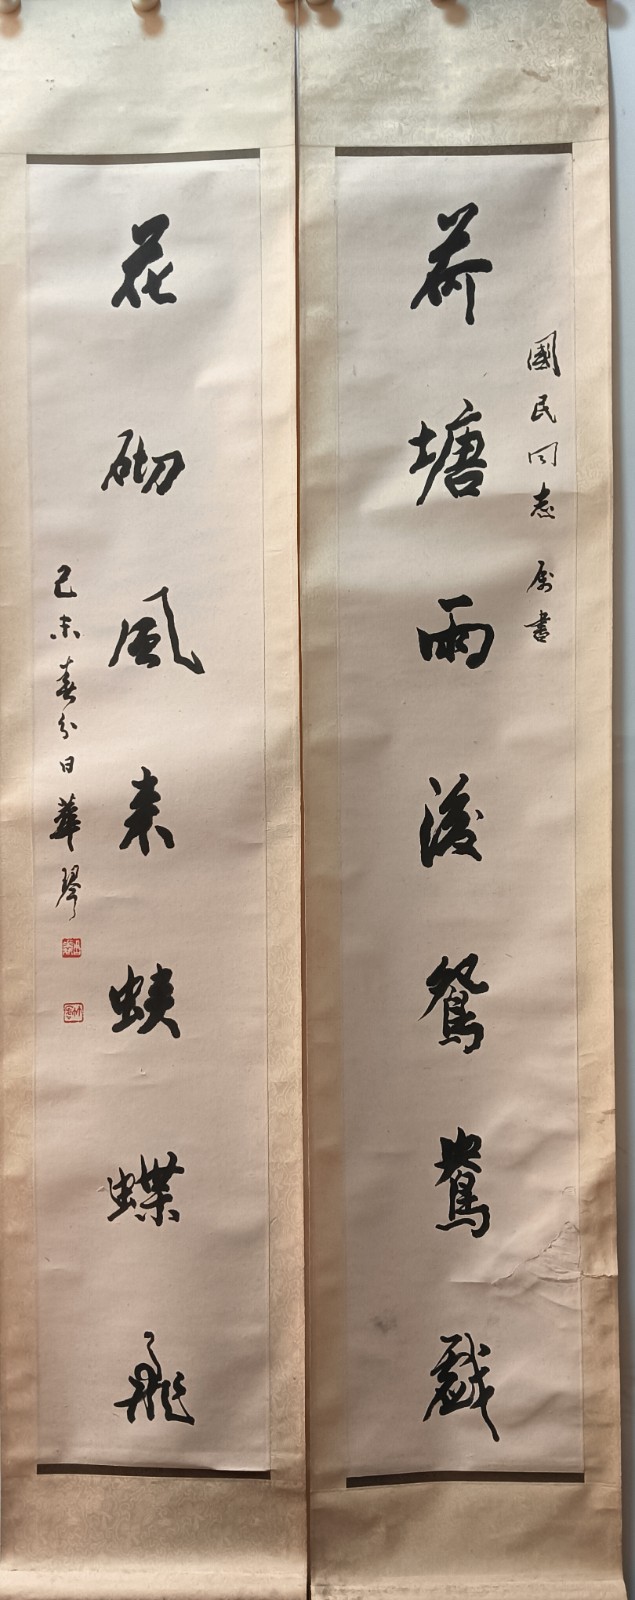 國民同志 属書
荷塘雨後鴛鴦戲
花砌風来蛱蝶飛
己未春分日華琴